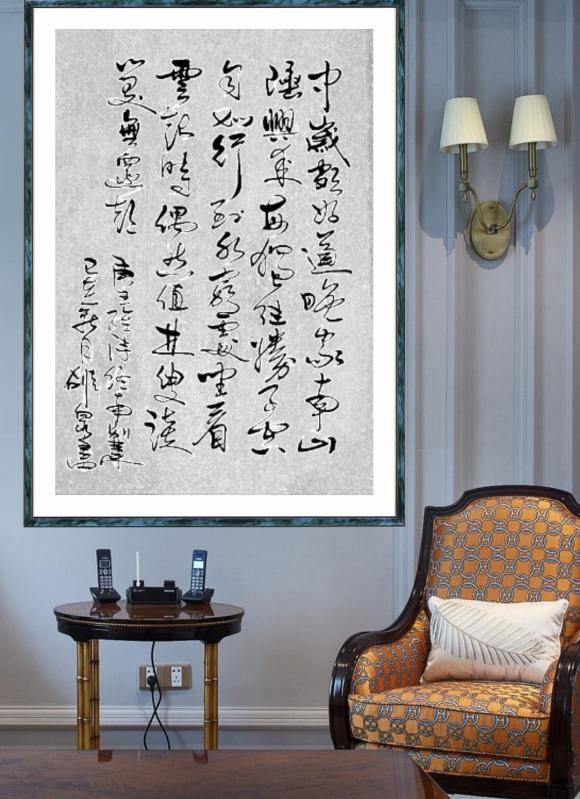 中歲頗好道晚家南山
陲興來每獨往勝子空
自知行到水窮處坐看
雲起時偶然值林叟談
笑無還期
唐王維詩終南別業
己亥 月雄 書